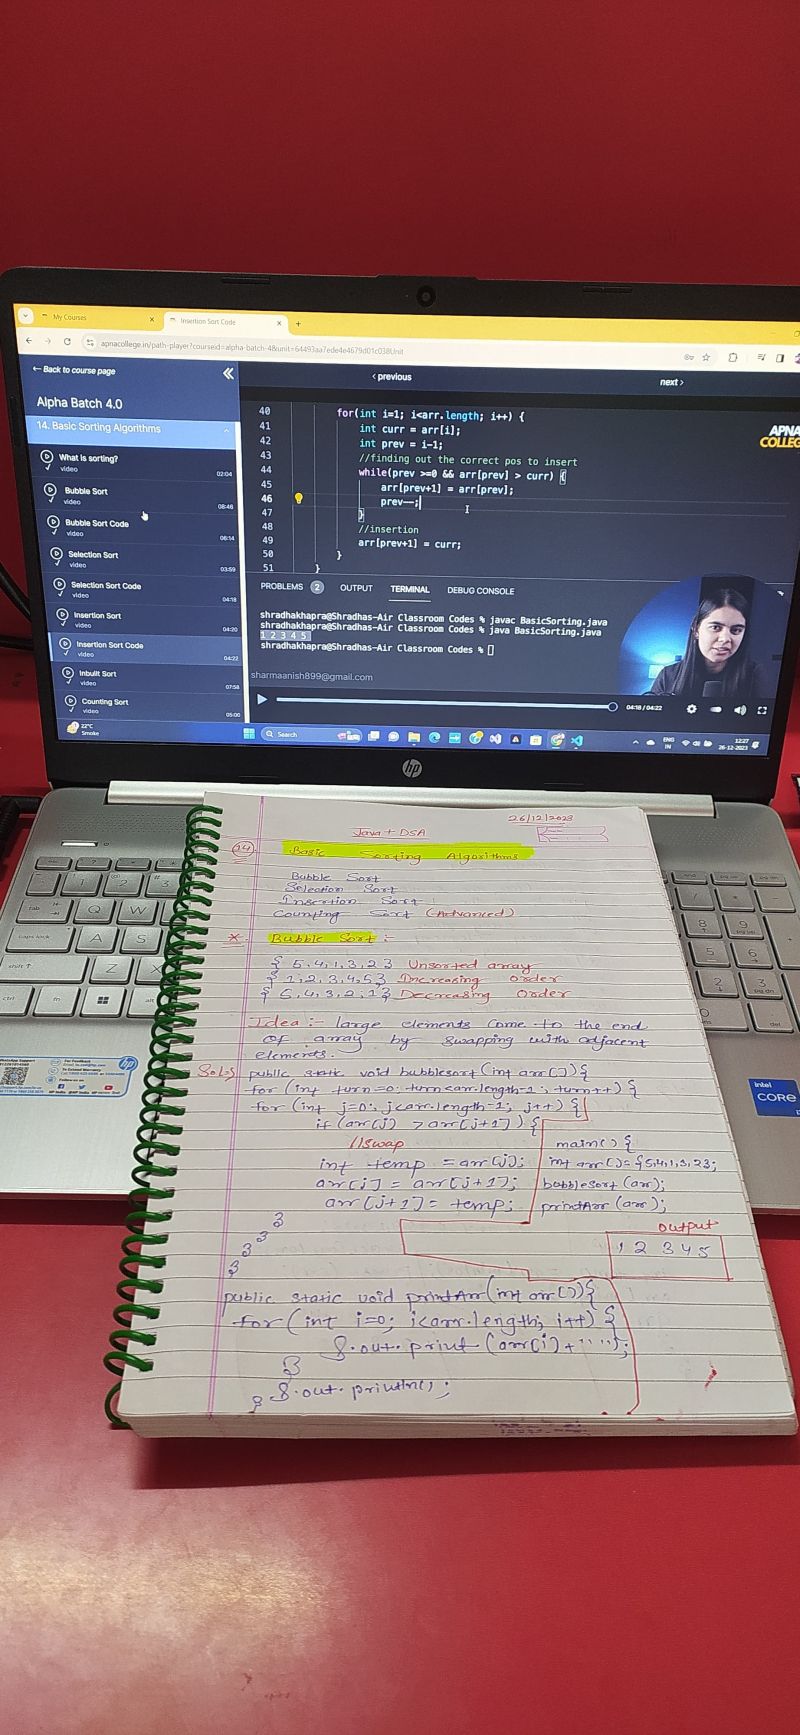 My Courses
Insertion Sort Code
apnacollege.in/path-player?courseid=alpha-batch-4&unit=64493aa7ede4e4679d01c038Unit
← Back to course page
Alpha Batch 4.0
14. Basic Sorting Algorithms
What is sorting?
video
02:04
Bubble Sort
video
08:46
Bubble Sort Code
video
06:14
Selection Sort
video
03:59
Selection Sort Code
video
04:18
Insertion Sort
video
04:20
Insertion Sort Code
video
04:22
Inbuilt Sort
video
07:58
Counting Sort
video
05:00
< previous
next >
APNA
COLLEG
40 for(int i=1; i<arr.length; i++) {
41 int curr = arr[i];
42 int prev = i-1;
43 //finding out the correct pos to insert
44 while(prev >=0 && arr[prev] > curr) {
45 arr[prev+1] = arr[prev];
46 prev--;
47 }
48 //insertion
49 arr[prev+1] = curr;
50 }
51 }
PROBLEMS 2 OUTPUT TERMINAL DEBUG CONSOLE
shradhakhapra@Shradhas-Air Classroom Codes % javac BasicSorting.java
shradhakhapra@Shradhas-Air Classroom Codes % java BasicSorting.java
1 2 3 4 5
shradhakhapra@Shradhas-Air Classroom Codes %
sharmaanish899@gmail.com
04:18 / 04:22
22°C
Smoke
Search
ENG
IN
12:27
26-12-2023
hp
intel
CORE
26/12/2023
Java + DSA
14 Basic Sorting Algorithms
Bubble Sort
Selection Sort
Insertion Sort
Counting Sort (Advanced)
* Bubble Sort :-
{ 5,4,1,3,2} Unsorted array
{ 1,2,3,4,5} Increasing order
{ 5,4,3,2,1} Decreasing order
Idea :- large elements come to the end
of array by swapping with adjacent
elements.
public static void bubblesort (int arr[]){
for (int turn=0; turn<arr.length-1; turn++) {
for (int j=0; j<arr.length-1; j++) {
if (arr[j] > arr[j+1]) {
//swap
int temp = arr[j];
arr[j] = arr[j+1];
arr[j+1] = temp;
}
}
}
}
main() {
int arr[]={5,4,1,3,2};
bubblesort (arr);
printArr (arr);
output
1 2 3 4 5
public static void printArr(int arr[]){
for (int i=0; i<arr.length; i++) {
S.out.print (arr[i]+" ");
}
S.out.println();
}